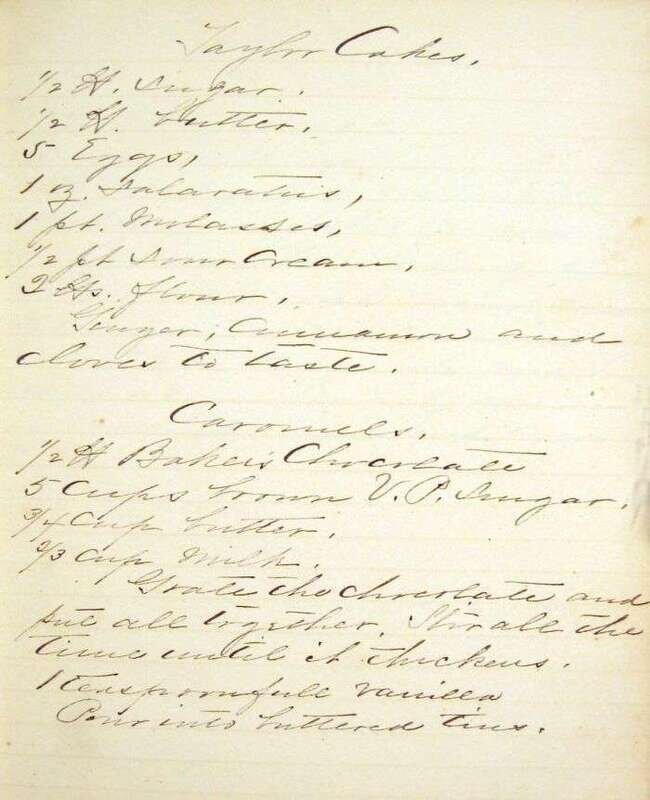 Taylor Cakes.
1/2 lb. Sugar.
1/2 lb. butter.
5 Eggs,
1 oz. Salaratus,
1 pt. Molasses,
1/2 pt Sour Cream,
2 lbs. flour,
Ginger, Cinnamon and
cloves to taste.
Caromels.
1/2 lb Baker's Chocolate
5 cups brown V. P. sugar.
3/4 cup butter.
2/3 cup Milk.
Grate the chocolate and
put all together. Stir all the
time until it thickens.
1 teaspoonfull vanilla
Pour into buttered tins.